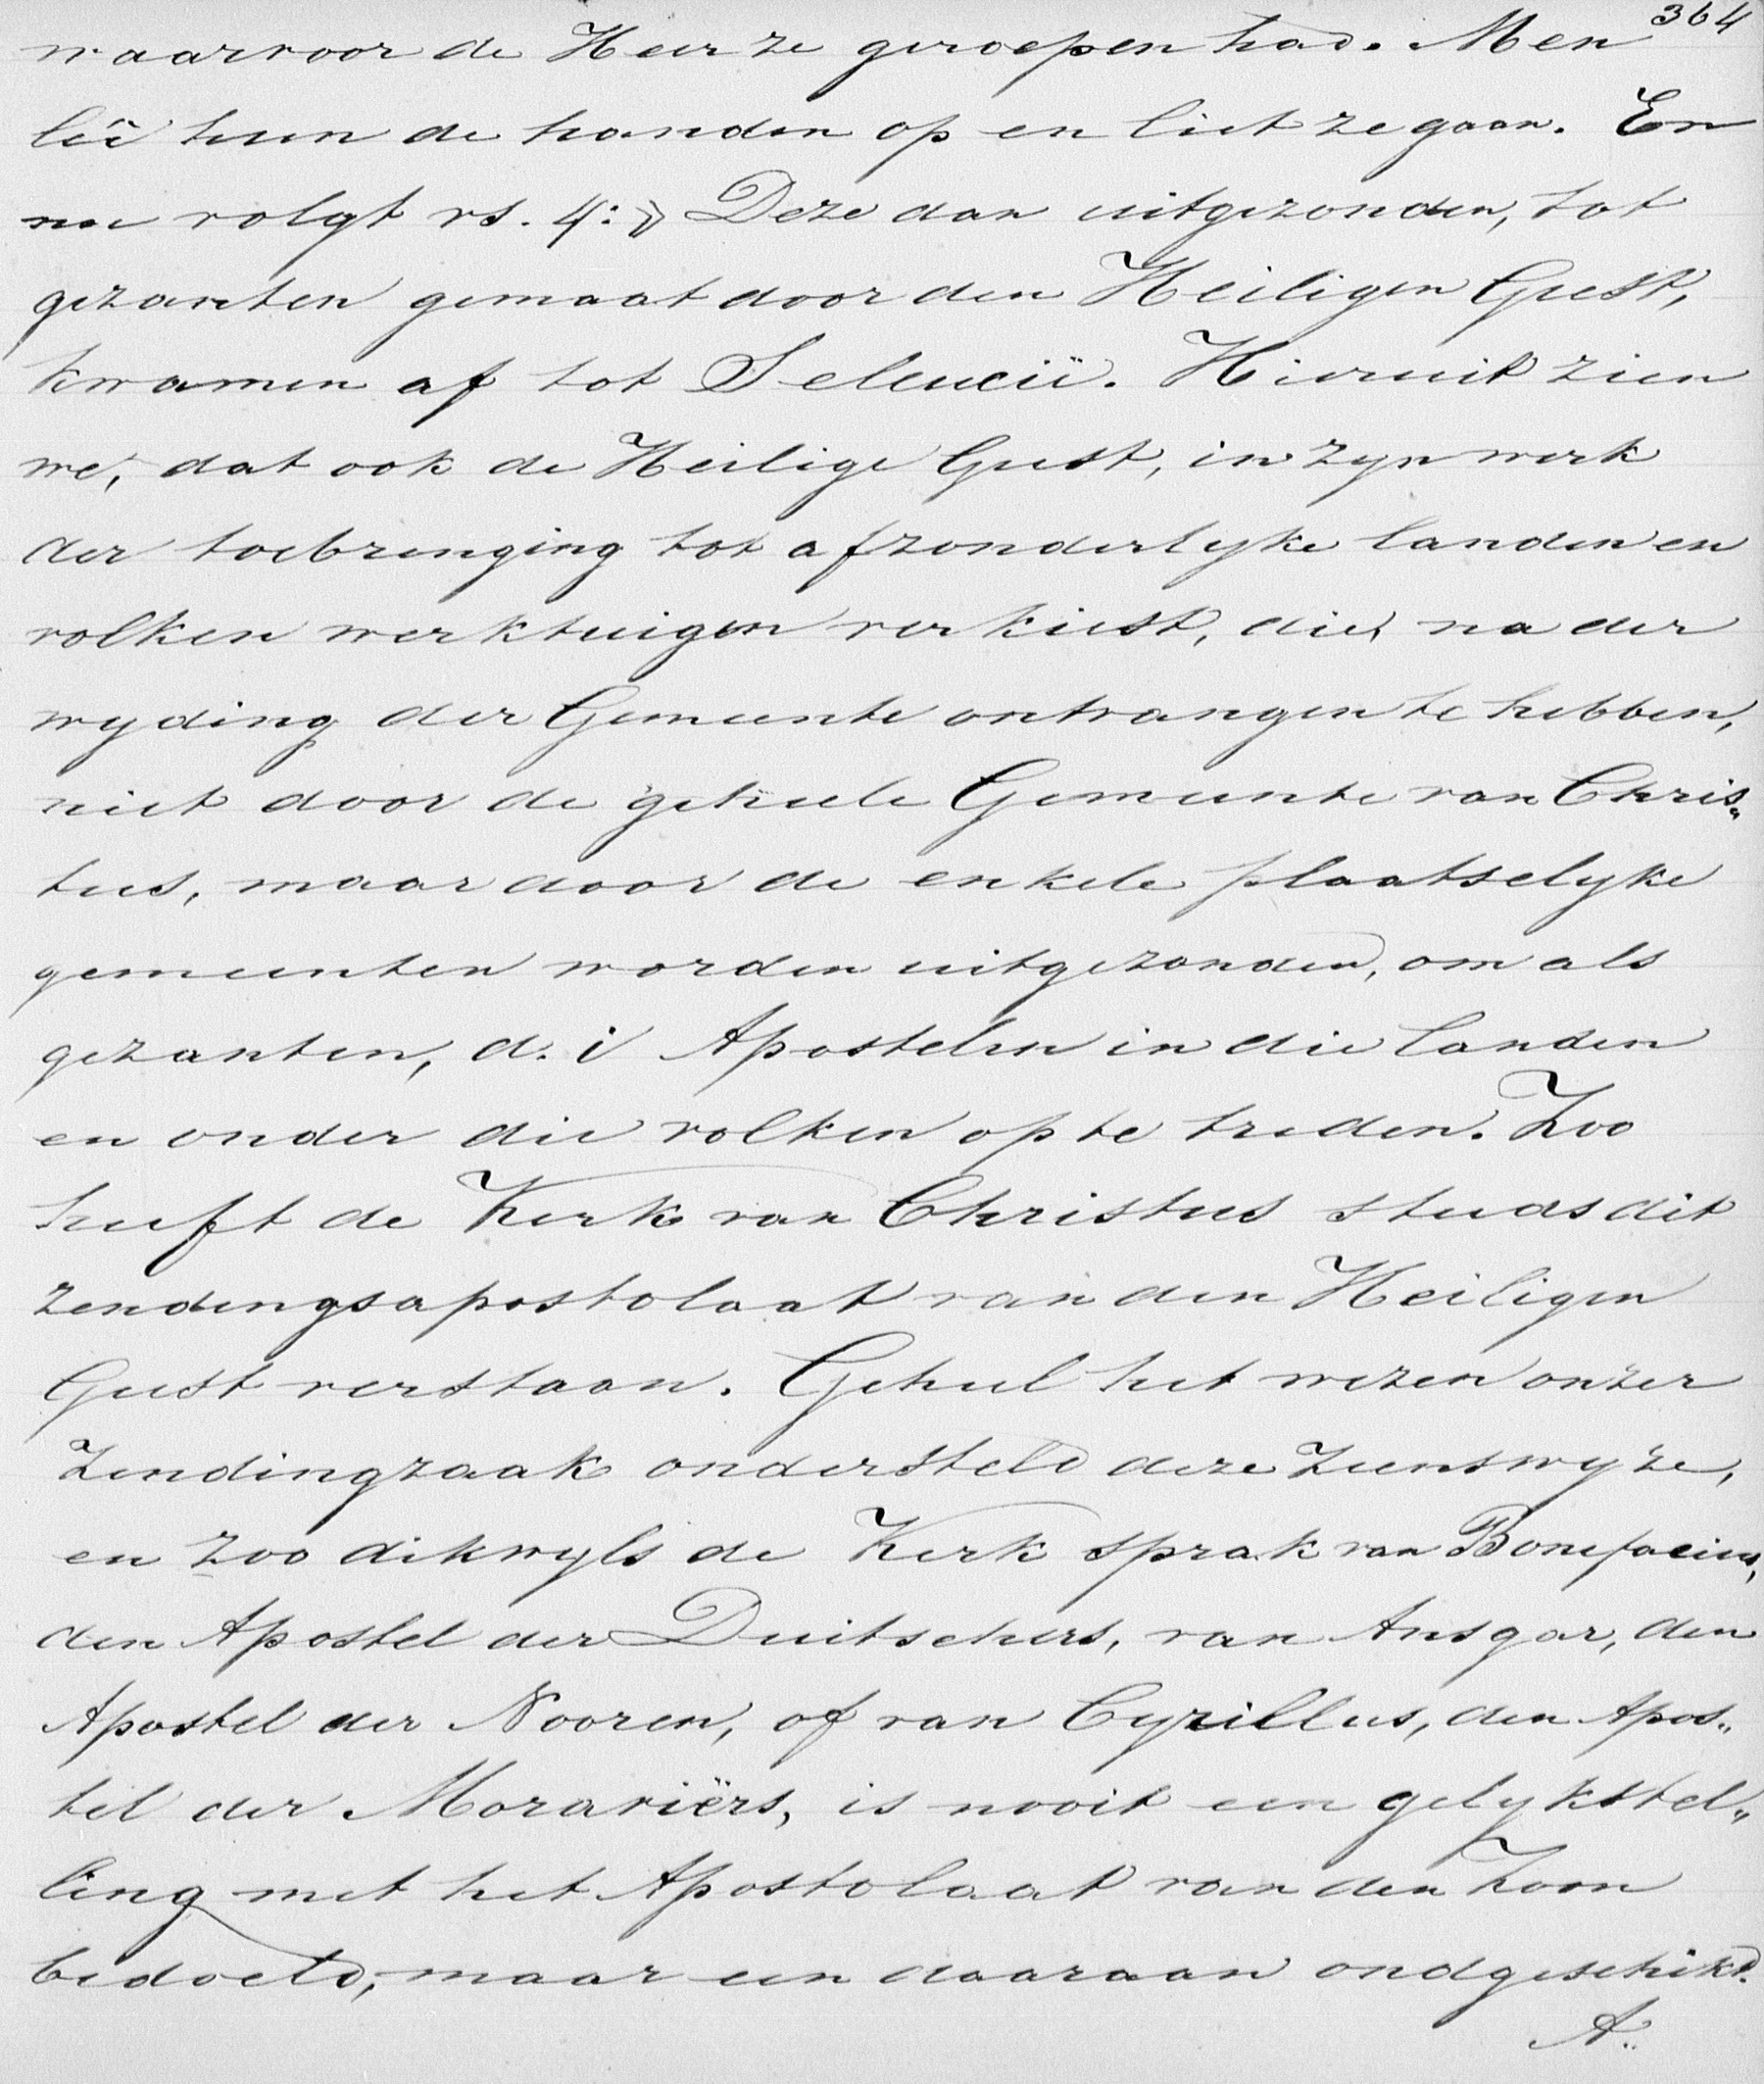 364
waarvoor de Heer ze geroepen had. Men
leî hun de handen op en liet ze gaan. En
nu volgt vs. 4: » Deze dan uitgezonden, tot
gezanten gemaat door den Heiligen Geest,
kwamen af tot Seleucië. Hieruit zien
we, dat ook de Heilige Geest, in zyn werk
der toebrenging tot afzonderlyke landen en
volken werktuigen verkiest, die, na der
wyding der Gemeente ontvangen te hebben,
niet door de geheele Gemeente van Chris„
tus, maar door de enkele plaatselyke
gemeenten worden uitgezonden, om als
gezanten, d. i Apostelen in die landen
en onder die volken op te treden. Zoo
heeft de Kerk van Christus steeds dit
zendingsapostolaat van den Heiligen
Geest verstaan. Geheel het wezen onzer
Zendingzaak ondersteld deze zienswyze,
en zoo dikwyls de Kerk sprak van Bonefacius,
den Apostel der Duitschers, van Ansgar, den
Apostel der Nooren, of van Cyrillus, den Apos„
tel der Moraviërs, is nooit een gelykstel„
ling met het Apostolaat van den Zoon
bedoeld, maar een daaraan ondgeschikt.
A..